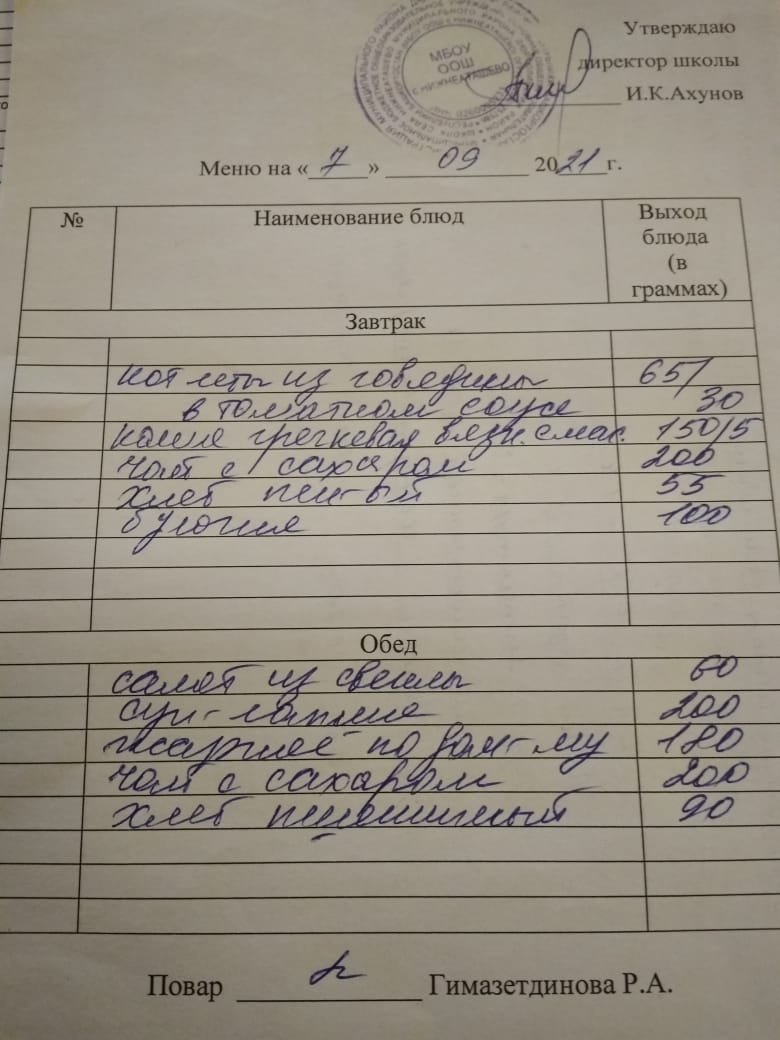 Утверждаю
директор школы
И.К.Ахунов
МБОУ
ООШ
с НИЖНЕАТАШЕВО
Меню на « 7 » 09 2021 г.
№ Наименование блюд Выход
блюда
(в
граммах)
Завтрак
котлеты из говядины 65/
в томатном соусе 30
каша гречневая вязк. с мас. 150/5
чай с сахаром 200
хлеб пш-ый 55
булочка 100
Обед
салат из свеклы 60
суп-лапша 200
жаркое по дом-му 180
чай с сахаром 200
хлеб пшеничный 90
Повар Гимазетдинова Р.А.